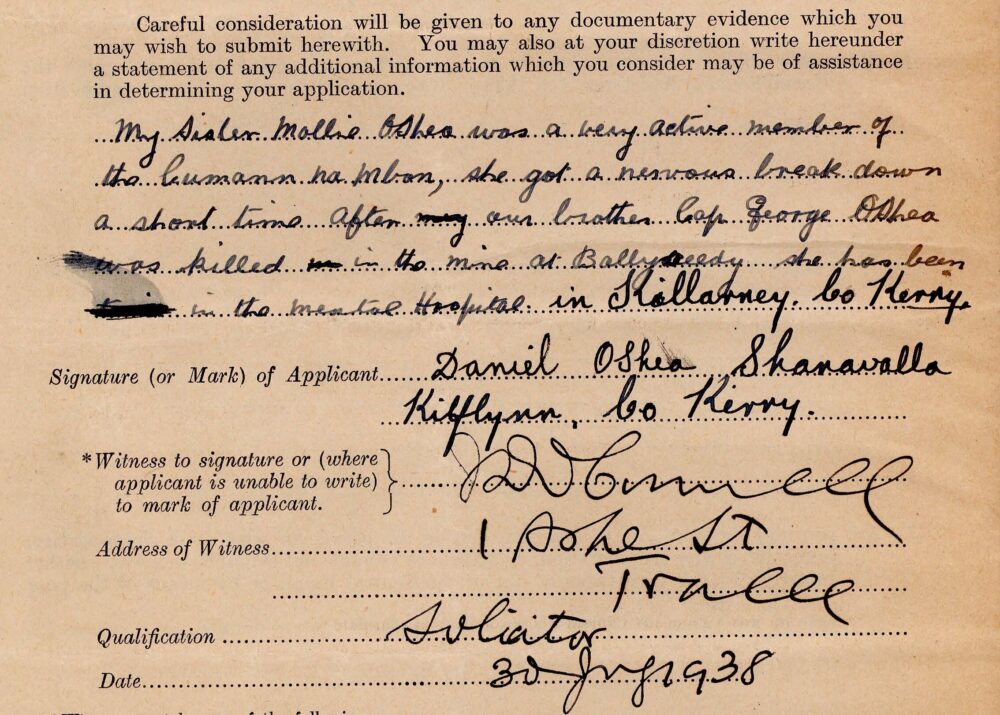 Careful consideration will be given to any documentary evidence which you
may wish to submit herewith. You may also at your discretion write hereunder
a statement of any additional information which you consider may be of assistance
in determining your application.
My Sister Mollie OShea was a very active member of
the Cumann na mban, she got a nervous break down
a short time after our brother Cap George OShea
was killed in the mine at Ballyseedy she has been
in the mental Hospital in Killarney. Co Kerry.
Signature (or Mark) of Applicant Daniel OShea Shanavalla
Kilflynn, Co Kerry.
*Witness to signature or (where
applicant is unable to write)
to mark of applicant.
Address of Witness 1 Ashe St
Tralee
Qualification Solicitor
Date 1938